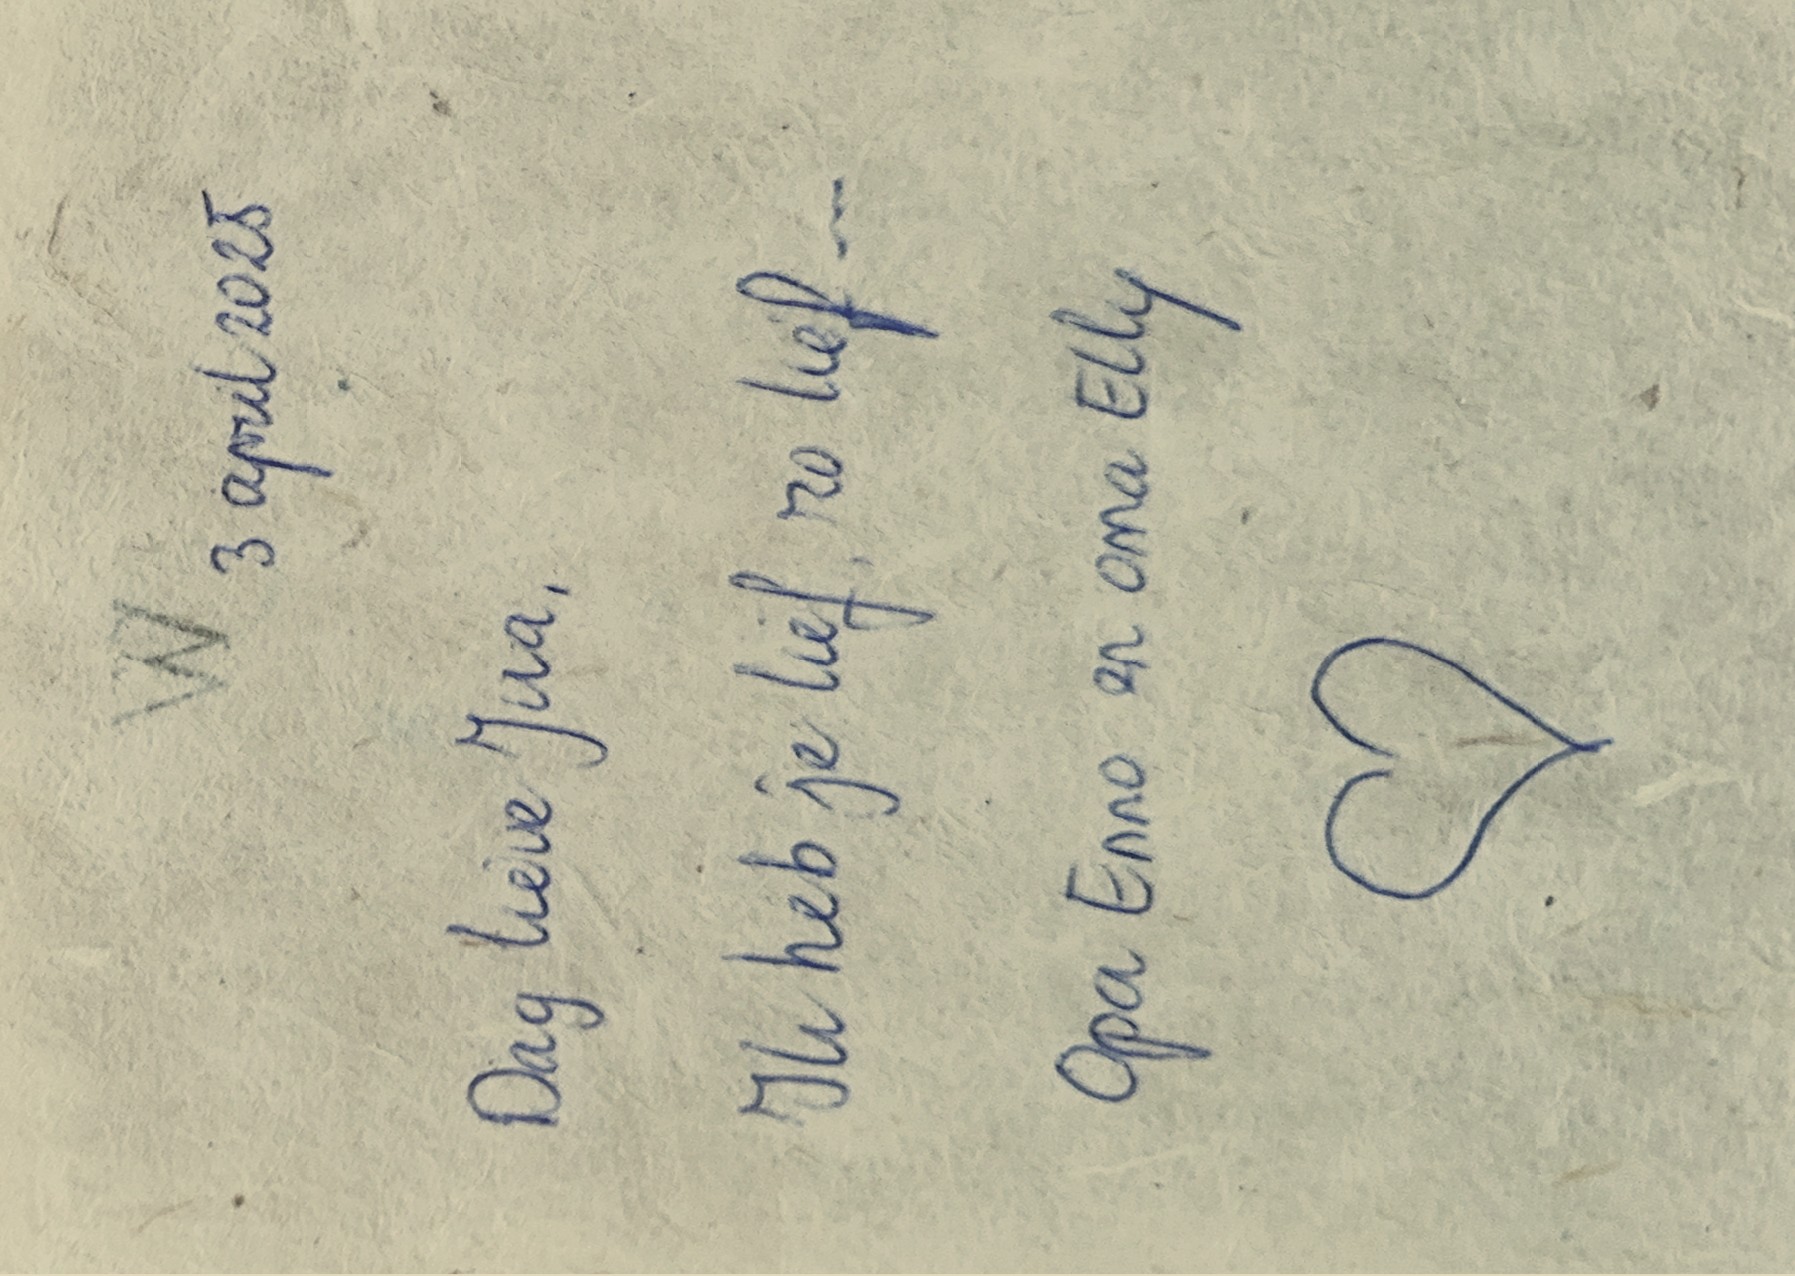 W
3 april 2025
Dag lieve Juna,
Ik heb je lief, zo lief ----
Opa Enno en oma Elly